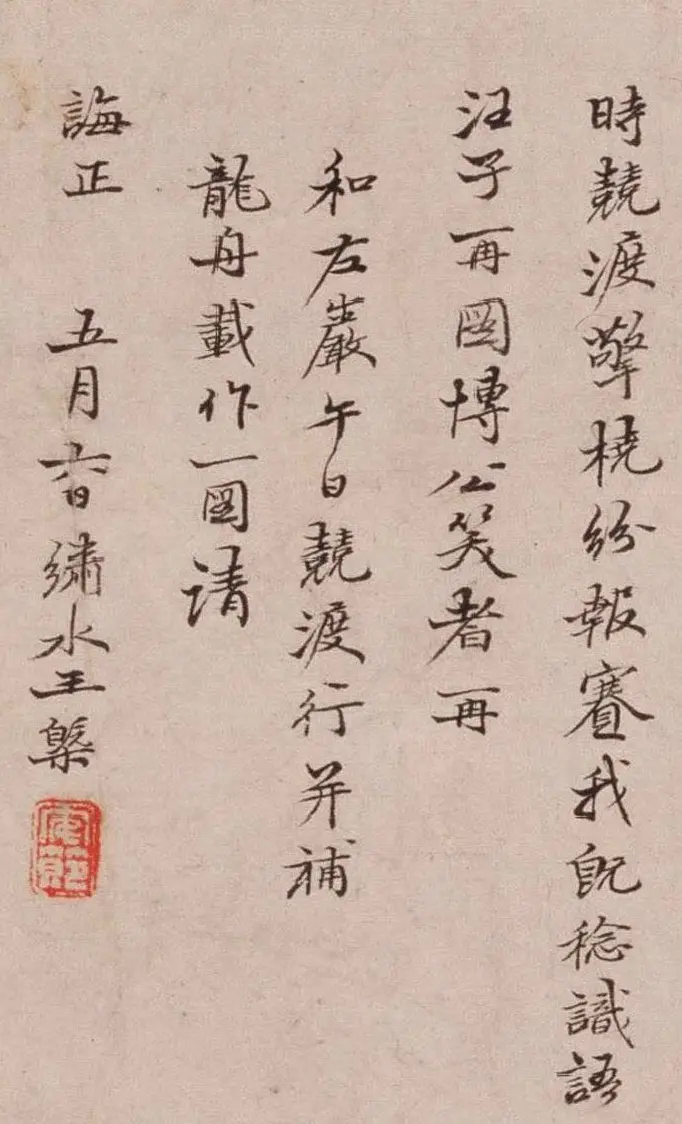 時競渡擎橈紛報賽我既稔識語
汪子再圖博公笑者再
和左巖午日競渡行并補
龍舟載作一圖請
誨正 五月六日繡水王槩
安節